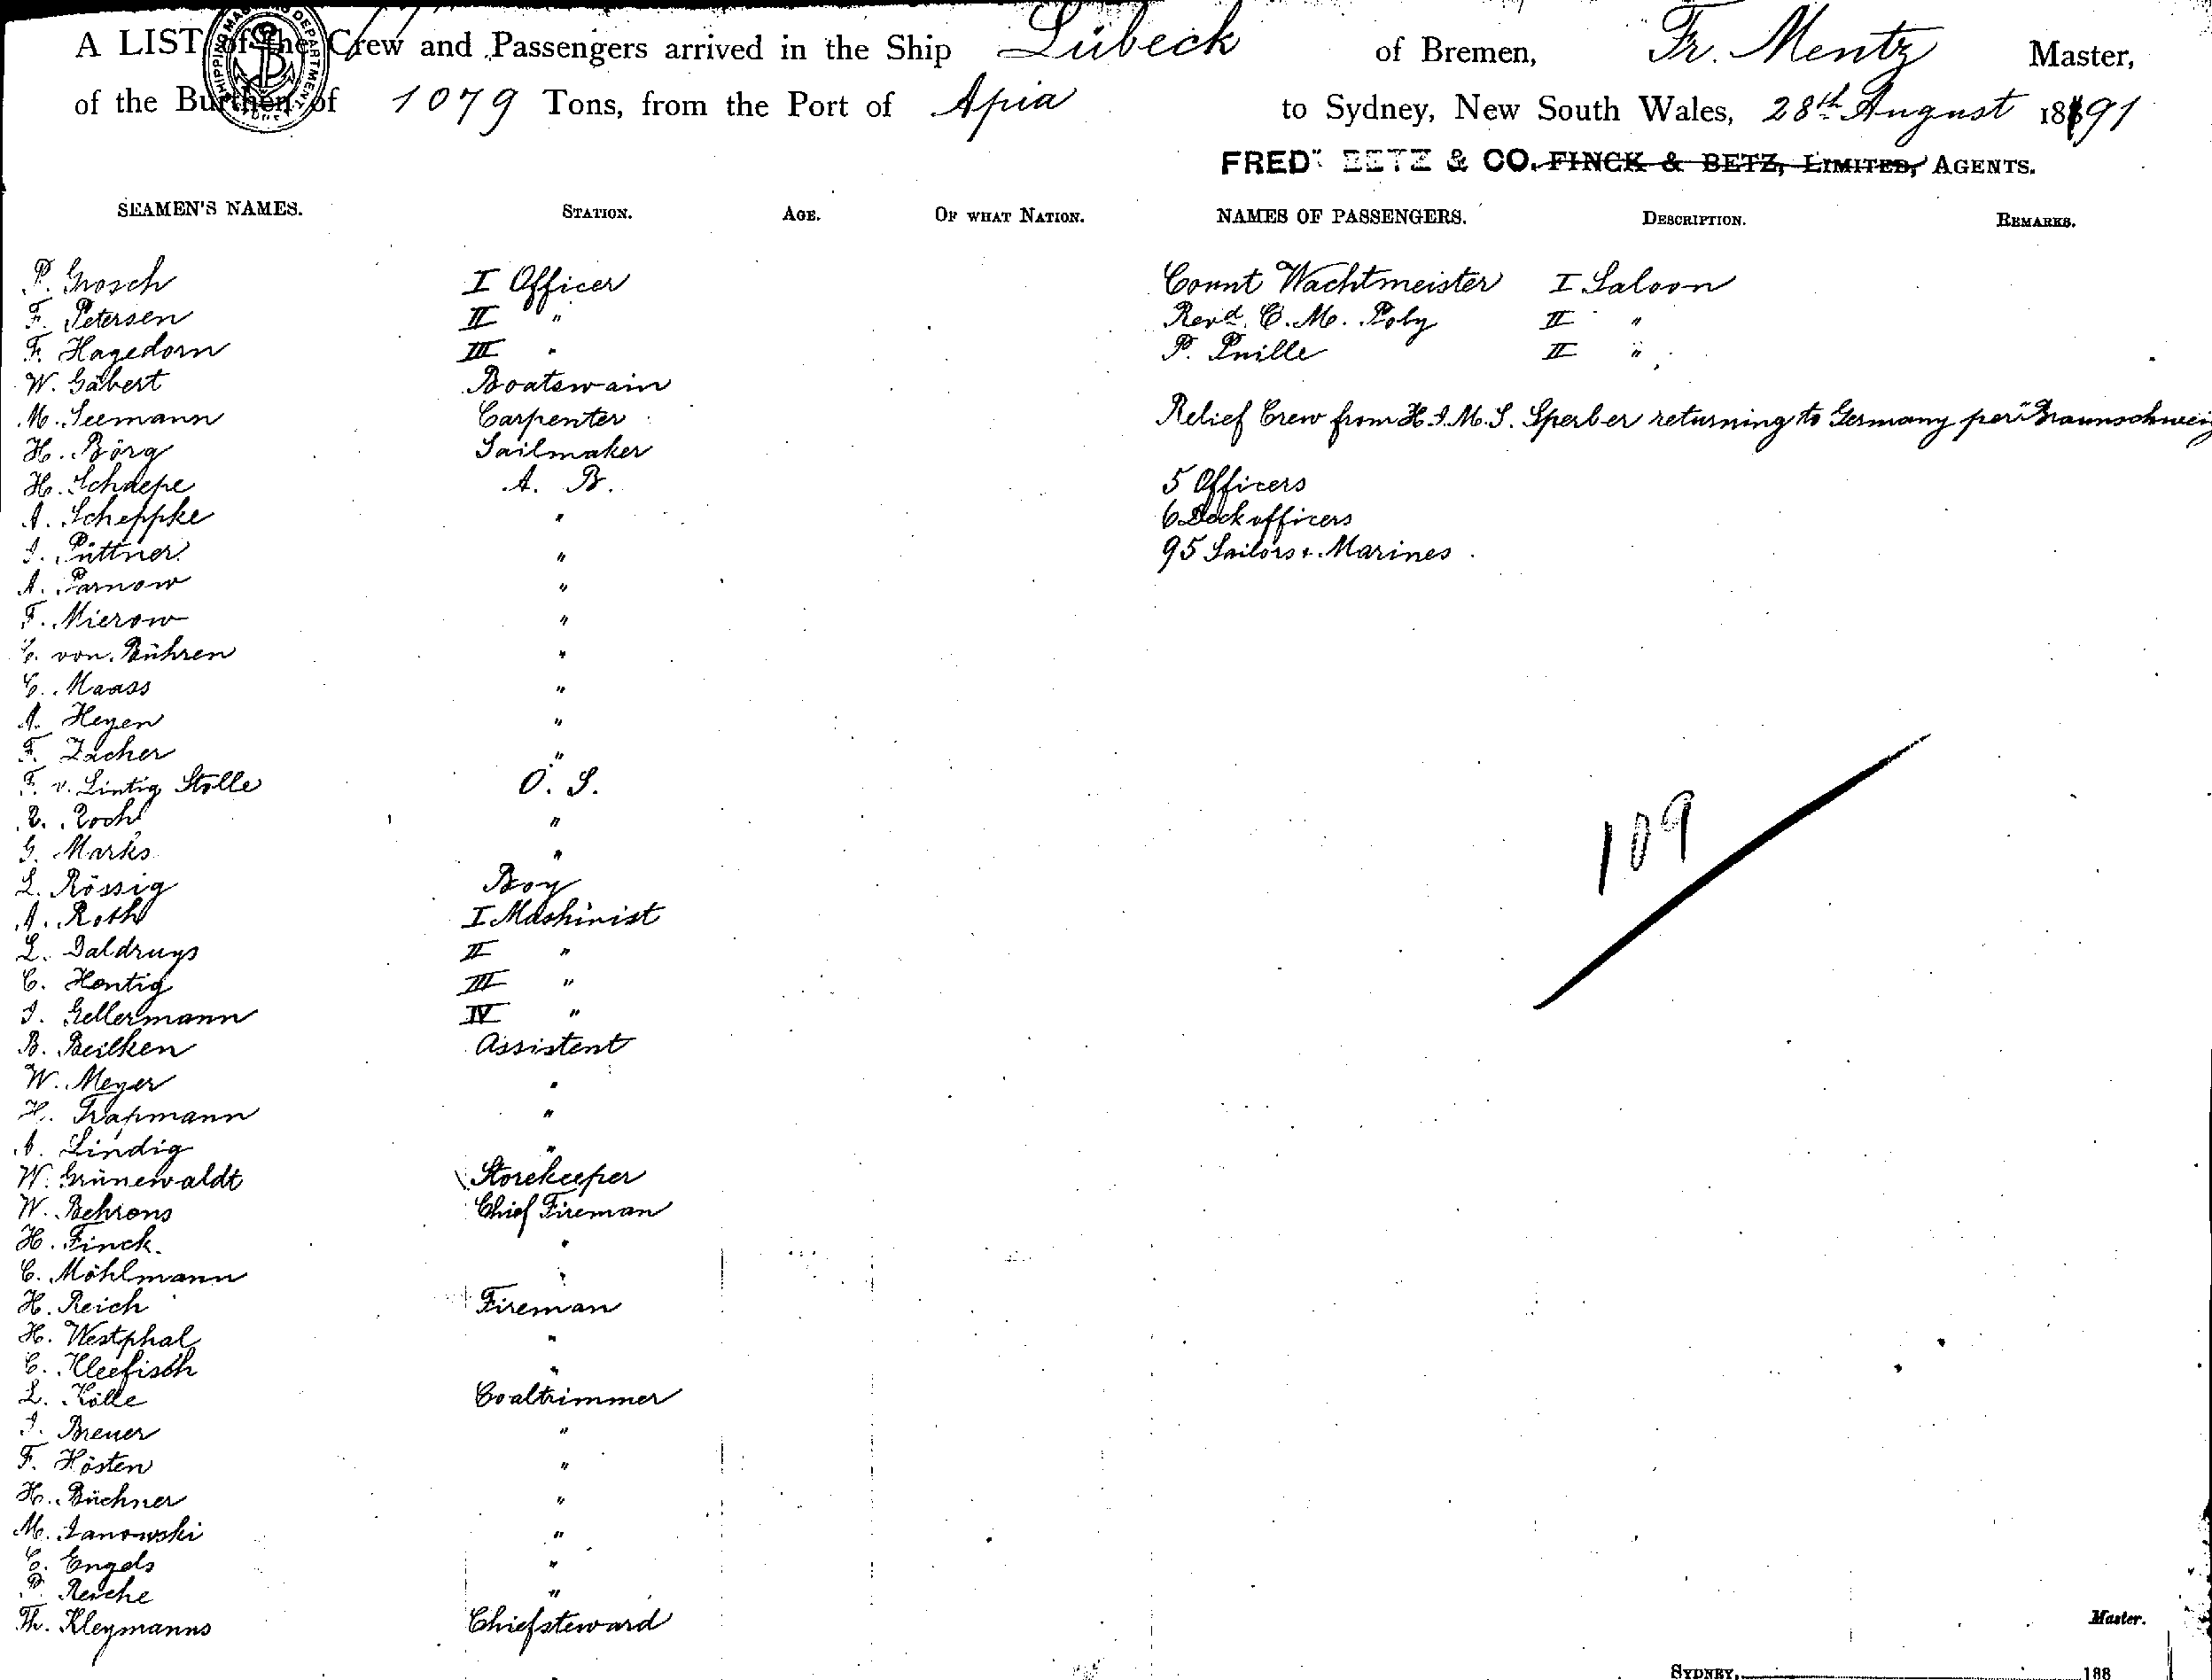 A LIST of the Crew and Passengers arrived in the Ship Lübeck of Bremen, Fr. Mentz Master,
of the Burthen of 1079 Tons, from the Port of Apia to Sydney, New South Wales, 28th August 1891
FREDK BETZ & CO. FINCK & BETZ, LIMITED, AGENTS.
SEAMEN'S NAMES. STATION. AGE. OF WHAT NATION. NAMES OF PASSENGERS. DESCRIPTION. REMARKS.
P. Grosch I Officer Count Wachtmeister I Saloon
F. Petersen II " Revd. C. M. Poly II "
Fr. Hagedorn III " P. Puille II "
W. Gäbert Boatswain
M. Seemann Carpenter Relief Crew from H.I.M.S. Sperber returning to Germany per "Braunschweig
H. Börg Sailmaker
H. Schaepe A. B. 5 Officers
A. Scheppke " 6 Deckofficers
I. Püttner " 95 Sailors & Marines
A. Parnow "
F. Mierow "
C. von Bühren "
C. Maass "
A. Heyen "
F. Zacher "
F. v. Lintig Stolle O. S.
R. Roch "
G. Marks "
109
L. Rössig Boy
A. Roth I Mashinist
L. Daldrugs II "
C. Hentig III "
I. Gellermann IV "
B. Beilken Assistent
W. Meyer "
H. Trapmann "
A. Lindig "
W. Grünewaldt Storekeeper
W. Behrens Chief Fireman
H. Finck. "
C. Möhlmann "
H. Reich Fireman
H. Westphal "
C. Kleefisch "
L. Kölle Coaltrimmer
I. Breuer "
F. Hösten "
H. Büchner "
M. Janowski "
C. Engels "
P. Reiche "
Th. Kleymanns Chiefsteward Master.
SYDNEY, 188